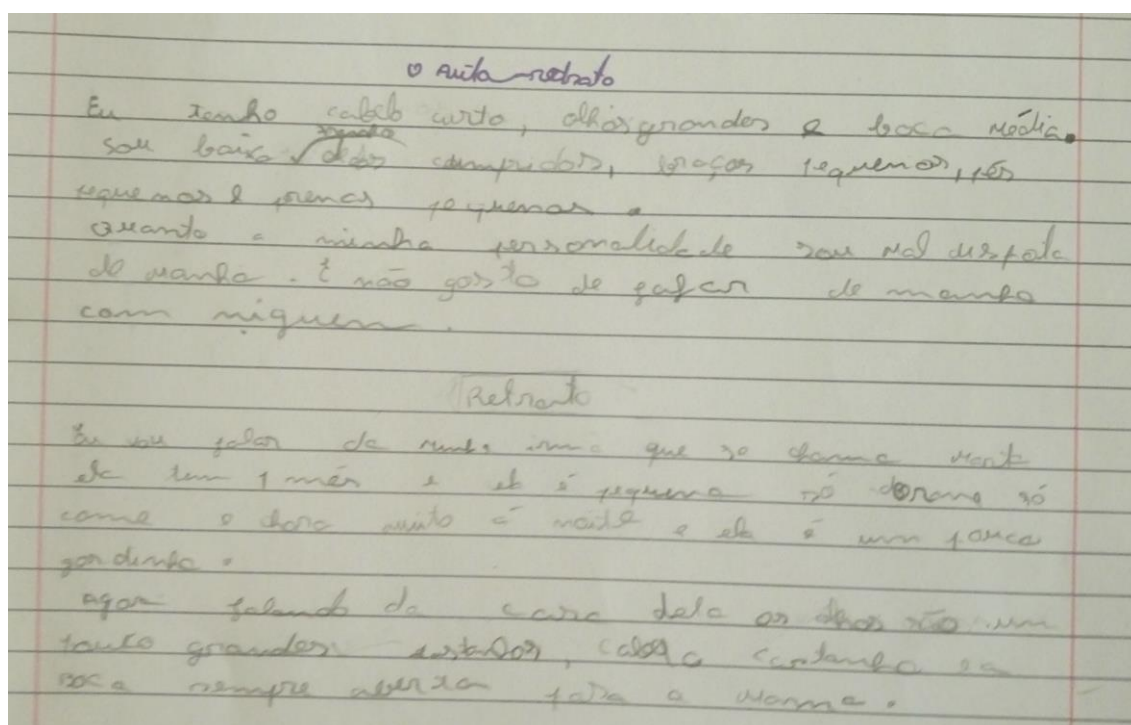 O Auto-retrato
Eu tenho cabelo curto, olhos grandes e boca média.
sou baixo, dedos compridos, braços pequenos, pés
pequenos e pernas pequenas.
Quanto a minha personalidade sou mal disposta
de manha. E não gosto de falar de manha
com niguem.
Retrato
Eu vou falar da minha irmã que se chama
ela tem 1 mês e ela é pequena só dorme só
come e chora muito á noite e ela é um pouco
gordinha.
agora falando da cara dela os olhos são um
pouco grandes cabelo castanho e a
boca sempre aberta para a mama.